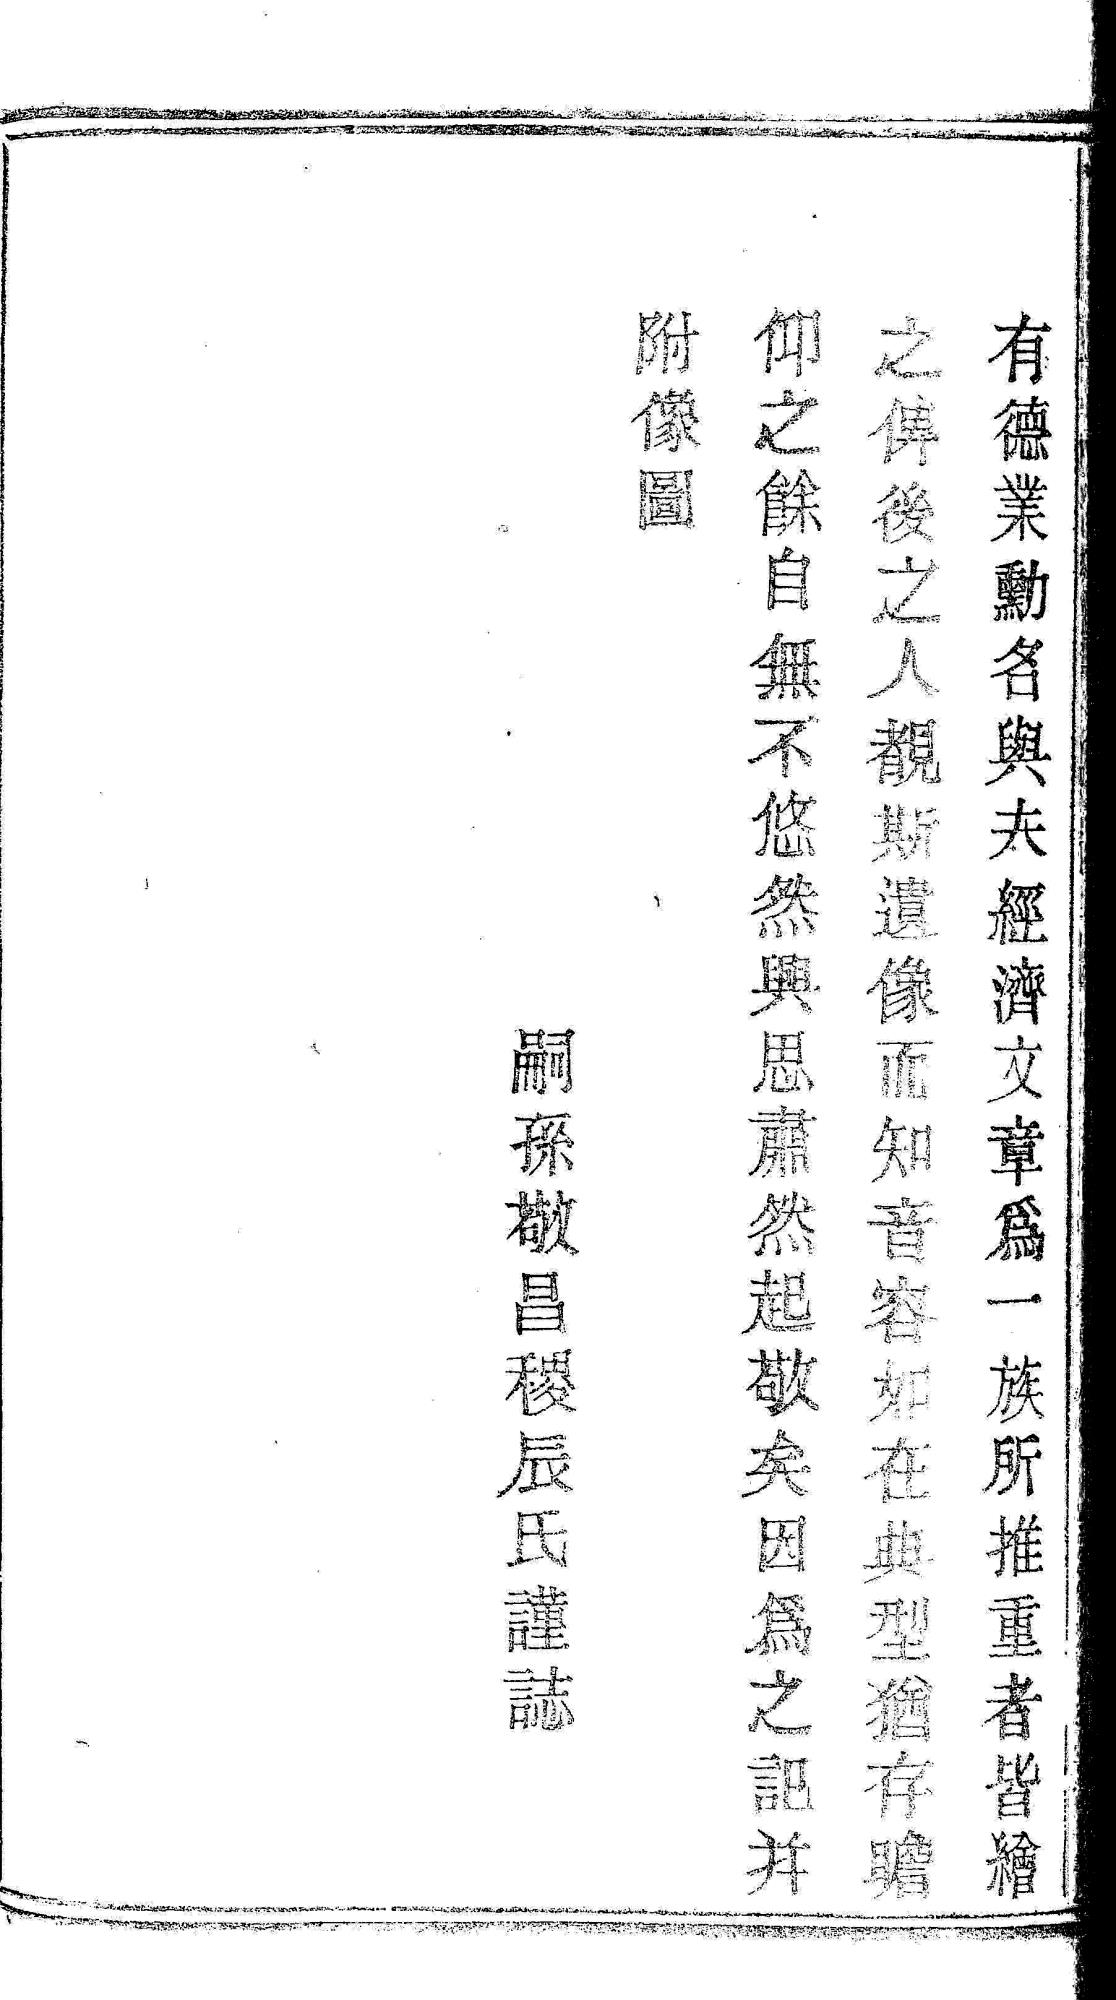 有德業勳名與夫經濟文章爲一族所推重者皆繪
之俾後之人覩斯遺像而知音容如在典型猶存瞻
仰之餘自無不悠然興思肅然起敬矣因爲之記并
附像圖
嗣孫敬昌稷辰氏謹誌